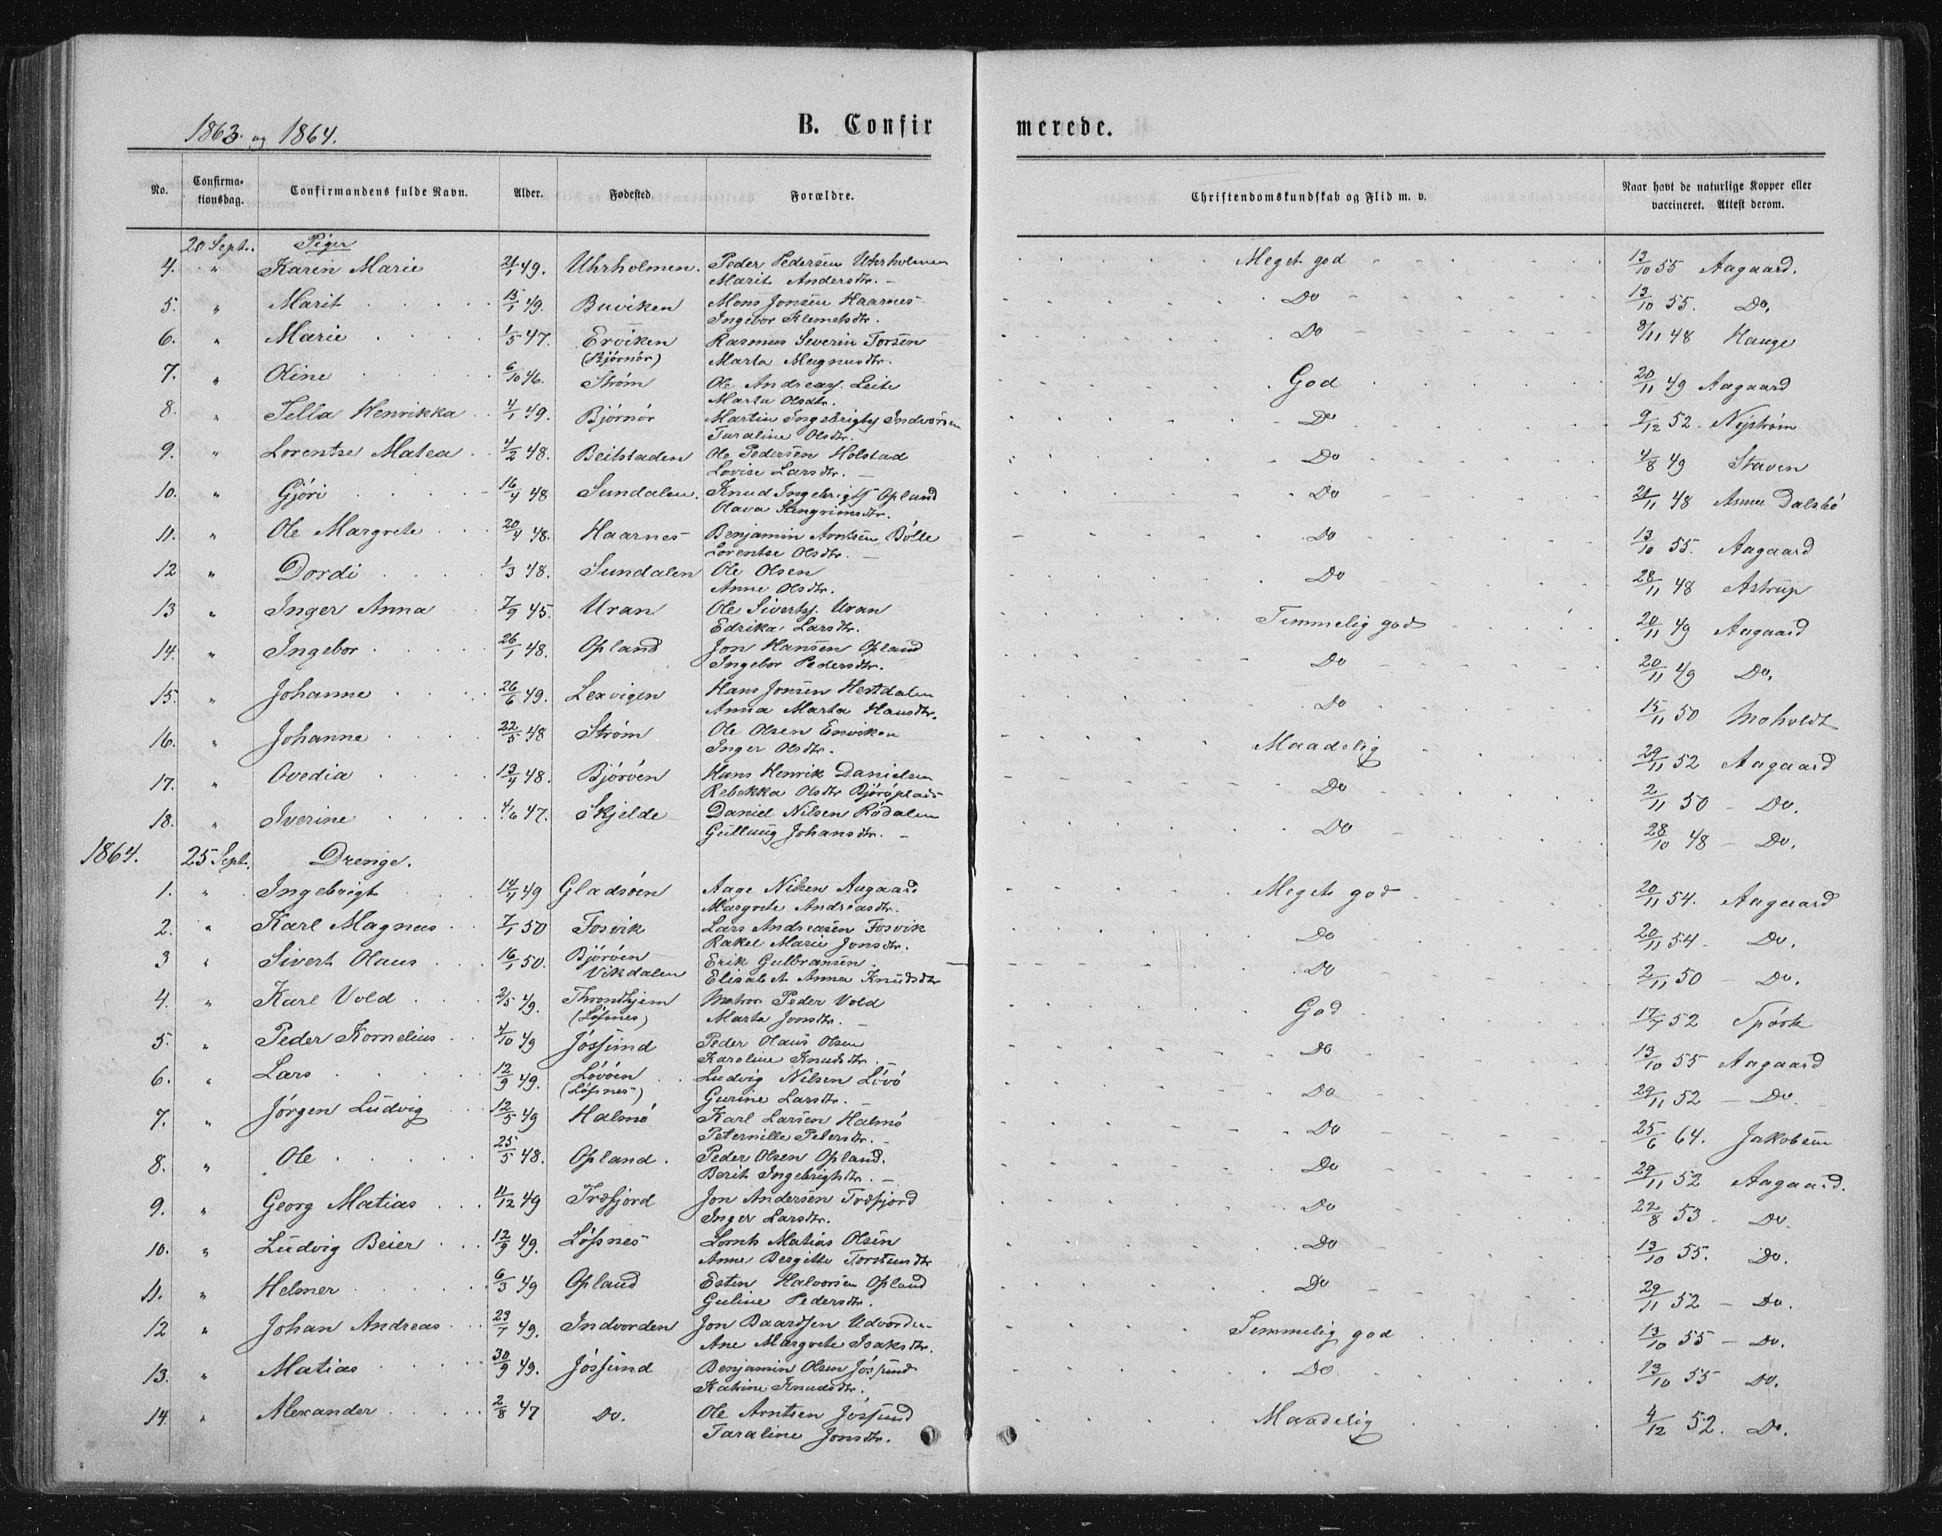 1863. og 1864.
B. Confirmerede.
No. Confirmationsdag. Confirmandens fulde Navn. Alder. Fødested Forældre. Christendomskundskab og Flid m. v. Naar havt de naturlige Kopper eller vaccineret. Attest derom.
20 Sept. Piger
4. " Karin Marie 21/1 49. Uhrholmen. Peder Pedersen Uhrholmen Meget god 13/10 55 Aagaard.
Marit Andersdtr.
5. " Marit 15/1 49. Buviken Mons Jonsen Haarnes Do 13/10 55. Do.
Ingebor Klemetsdtr.
6. " Marie 1/5 47. Erviken Rasmus Severin Torsen Do 8/11 48 Hauge
(Bjørnør) Marta Magnusdtr.
7. " Oline 6/10 46. Strøm Ole Andreas. Leite God 20/11 49 Aagaard
Marta Olsdtr.
8. " Sella Henrikka 4/1 49. Bjørnør Martin Ingebrigts Indvorden Do 9/12 52. Nystrøm
Taraline Olsdtr.
9. " Lorentse Matea 4/2 48. Beitstaden Ole Pedersen Holstad Do 4/8 49 Staven
Lovise Larsdtr.
10. " Gjøri 16/4 48 Sundalen. Knud Ingebrigts Opland Do 21/11 48 Anne Dalsbø
Olava Stengrimsdtr.
11. " Ole Margrete 20/4 48. Haarnes Benjamin Arntsen Bølle Do 13/10 55. Aagaard
Lorentse Olsdtr.
12 " Dordi 1/3 48. Sundalen Ole Olsen Do 28/11 48 Astrup
Anne Olsdtr.
13 " Inger Anna 7/9 45. Uran Ole Siverts. Uran Temmelig god 20/11 49 Aagaard
Edrika Larsdtr.
14. " Ingebor 26/1 48. Opland Jon Hansen Opland Do 20/11 49 Do.
Ingebor Pedersdtr.
15. " Johanne 26/6 49. Lexvigen Hans Jonsen Hestdalen Do 15/11 50 Moholdt
Anna Marta Hansdtr.
16. " Johanne 22/5 48 Strøm Ole Olsen Erviken Maadelig 29/11 52 Aagaard
Inger Olsdtr.
17. " Ovedia 13/4 48. Bjørøen Hans Henrik Danielsen Do 2/11 50 Do.
Rebekka Olsdtr Bjørøplads
18. " Iverine 4/6 47. Skjelde Daniel Nilsen Rødalen Do 28/10 48 Do.
Gullaug Johansdtr.
1864. 25 Sept. Drenge.
1. " Ingebrigt 14/4 49 Gladsøen Aage Nilsen Aagaard Meget god 20/11 54. Aagaard
Margrete Andreasdtr.
2. " Karl Magnus 7/1 50 Fosvik Lars Andreasen Fosvik Do 20/11 54. Do.
Rakel Marie Jonsdtr.
3 " Sivert Olaus 16/1 50. Bjørøen Erik Gulbransen Do 2/11 50 Do.
Vikdalen Elisabet Anna Knudsdtr
4. " Karl Vold 2/5 49. Throndhjem Matros Peder Vold God 17/7 52 Spörk
(Løfsnes) Marta Jonsdtr.
5. " Peder Kornelius 4/10 49 Jøssund Peder Olaus Olsen Do 13/10 55 Aagaard
Karoline Knudsdtr.
6. " Lars 12/9 49. Løvøen Ludvig Nilsen Løvø Do 29/11 52 Do.
(Løfsnes) Gurine Larsdtr.
7. " Jørgen Ludvig 12/5 49 Halmø Karl Larsen Halmø Do 25/6 64. Jakobsen
Peternille Petersdtr.
8. " Ole 25/5 48. Opland. Peder Olsen Opland. Do 29/11 52 Aagaard.
Berit Ingebrigtsdtr.
9. " Georg Matias 11/12 49 Træfjord Jon Andersen Træfjord Do 22/8 53. Do.
Inger Larsdtr.
10. " Ludvig Beier 12/9 49. Løfsnes Lornts Matias Olsen Do 13/10 55. Do.
Anne Bergitte Torstensdtr
11. " Helmer 6/3 49 Opland Esten Halvorsen Opland Do 29/11 52 Do.
Guline Pedersdtr.
12 " Johan Andreas 23/7 49. Indvorden Jon Baardsen Udvorden Temmelig god 13/10 55 Do.
Ane Margrete Isaksdtr.
13. " Matias 30/9 49. Jøssund Benjamin Olsen Jøssund Do 13/10 55 Do.
Katrine Knudsdtr.
14. " Alexander 2/8 47 Do. Ole Arntsen Jøssund Maadelig 4/12 52. Do.
Taraline Jonsdtr.